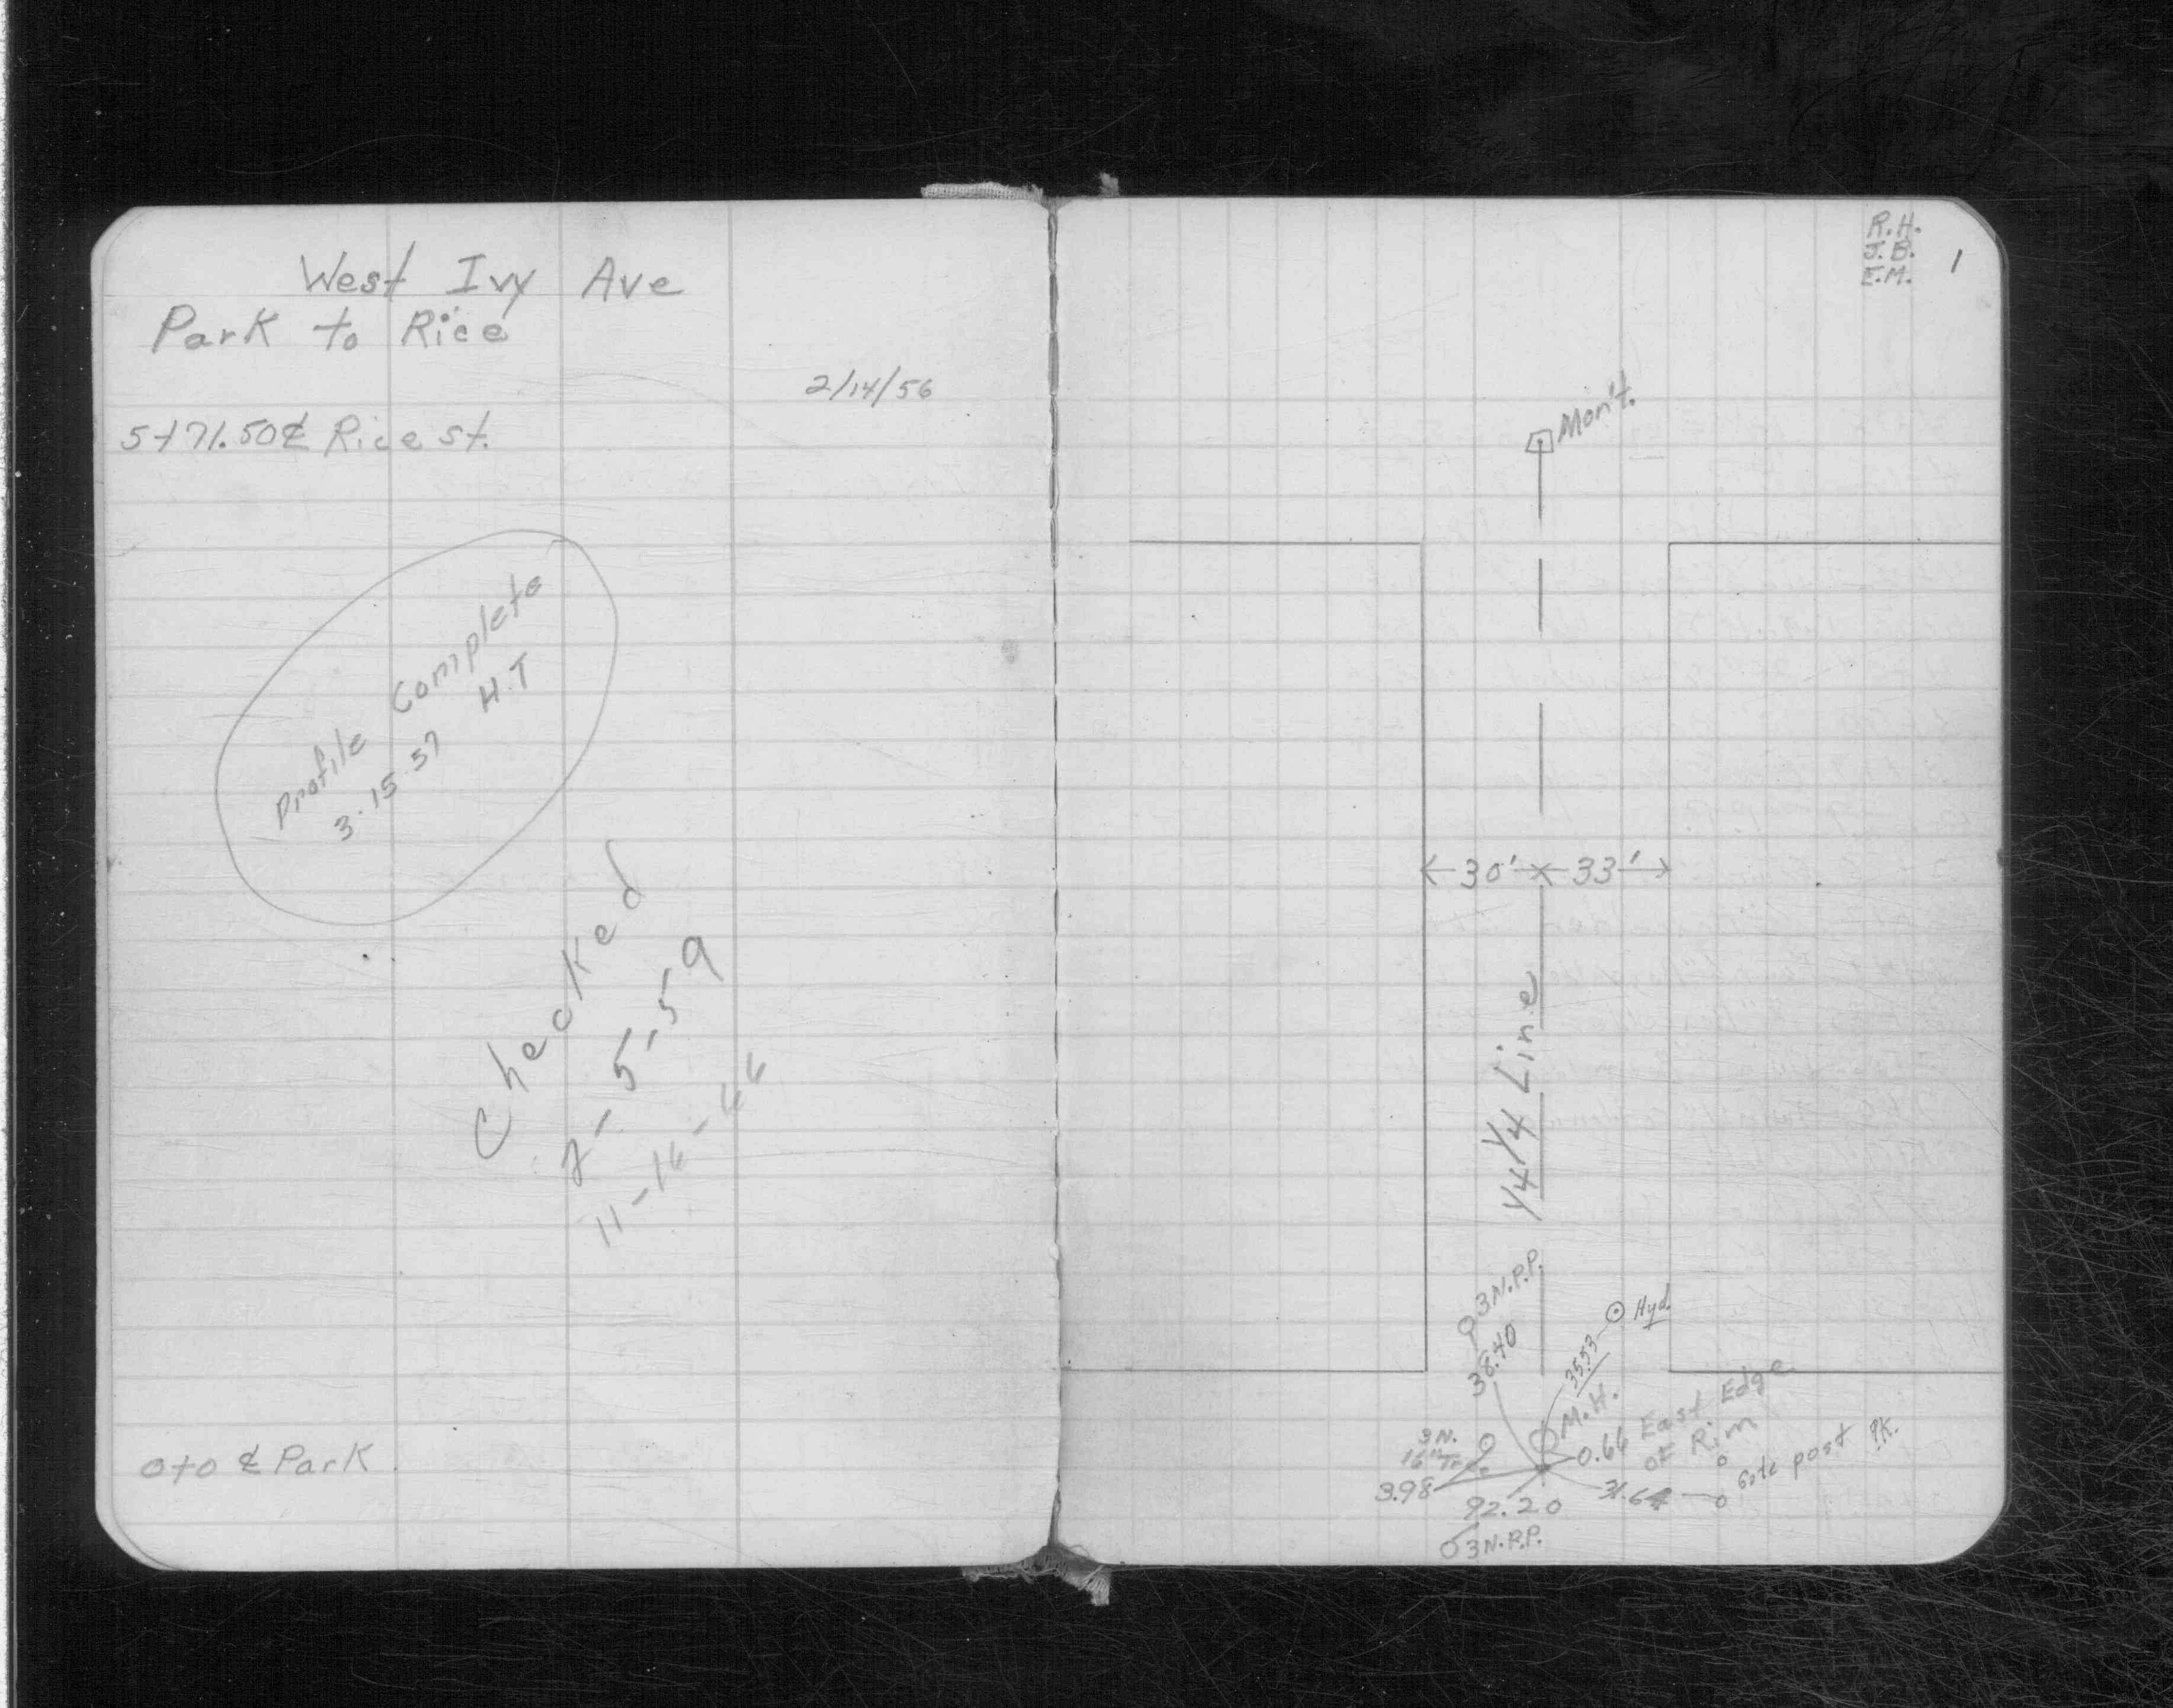 West Ivy Ave
Park to Rice
2/14/56
5+71.50 ℄ Rice st.
Profile Complete
3.15.57 H.T
Checked
2-5-59
11-16-66
0+0 ℄ Park
R.H.
J.B.
E.M.
1
Mon't.
30' 33'
1/4 1/4 Line
3N.P.P.
38.40
Hyd.
35.53
M.H.
0.66 East Edge
of Rim
3N.
16"
3.98
31.64
Gate post P.K.
92.20
3N.P.P.